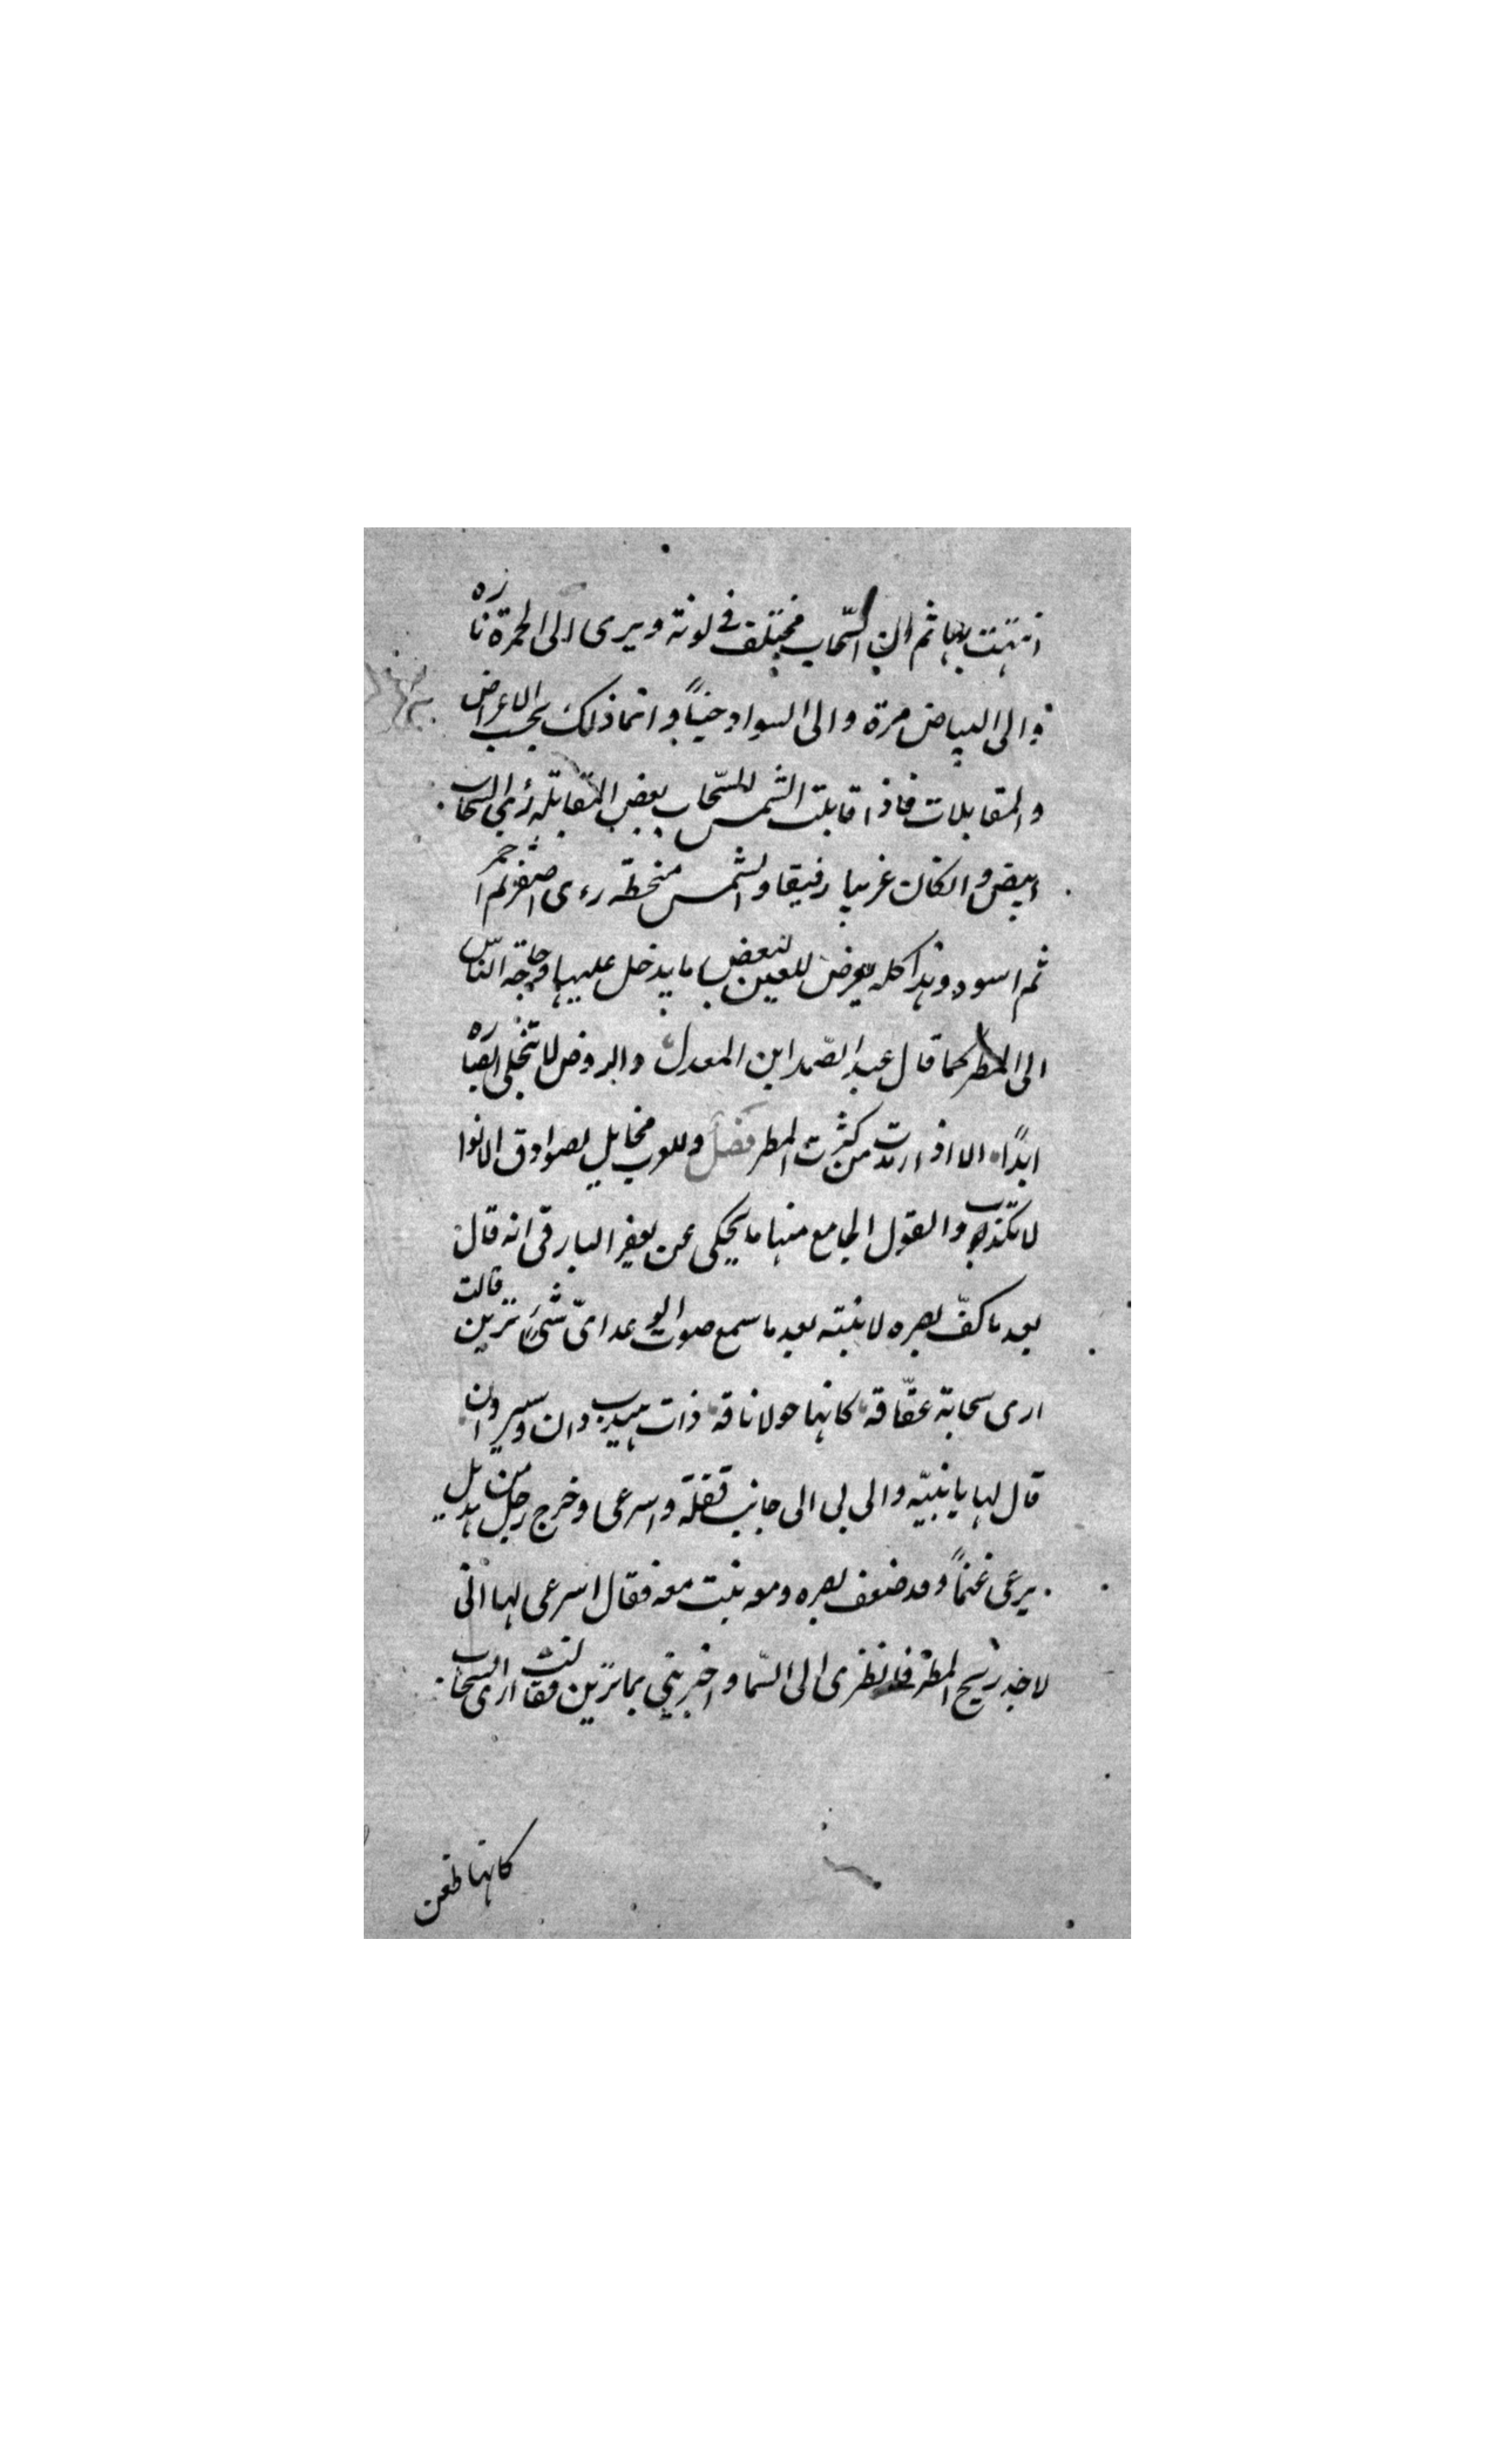 انتهت بها ثم ان السّحاب مختلف في لونه ويرى الى الحمرة تارة
والى البياض مرة والى السواد حيناً وانما ذلك بحسب الاعراض
والمقابلات فاذا قابلت الشمس السّحاب بعض المقابلة رُئي السحاب
ابيض وان كان غريبا رفيقا والشمس منحطه رءى اصفر ثم احمر
ثم اسود وهذا كله يعرض للعين لبعض ما يدخل عليها وحاجة النّاس
الى المطر كما قال عبد الصّمد ابن المعدل والروض لا تنجلي
ابداً الا اذا من كثرت المطر فضل وللعرب مخايل لصوادق الانوا
لا تكذب والقول الجامع منها ما يحكى عن يعفر البارقى انه قال
بعد ما كفّ بصره لابنته بعد ما سمع صوت الرعد اىّ شئ ترين قالت
ارى سحابة عقّاقة كانها حولا ناقة ذات هيدب دان وسير وان
قال لها يا بنيّه والى بى الى جانب قفلة واسرعى وخرج رجل من هذيل
يرعى غنماً وقد ضعف بصره ومعه بنت معه فقال اسرعى لها انى
لاجد ريح المطر فانظرى الى السّما واخبرينى بما ترين فقالت ارى السحاب
كانها ظعن